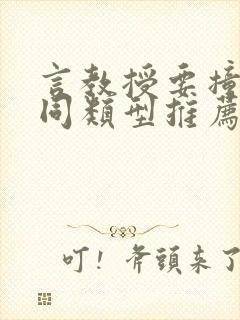 言教授要撞
同類型推薦
叮！斧頭來了